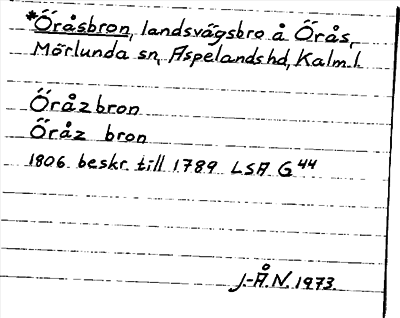 *Öråsbron, landsvägsbro å Örås,
Mörlunda sn, Aspelands hd, Kalm. l.
Öråzbron
Öråz bron
1806 beskr. till 1789 LSA G 44
J.-Å. N. 1973.